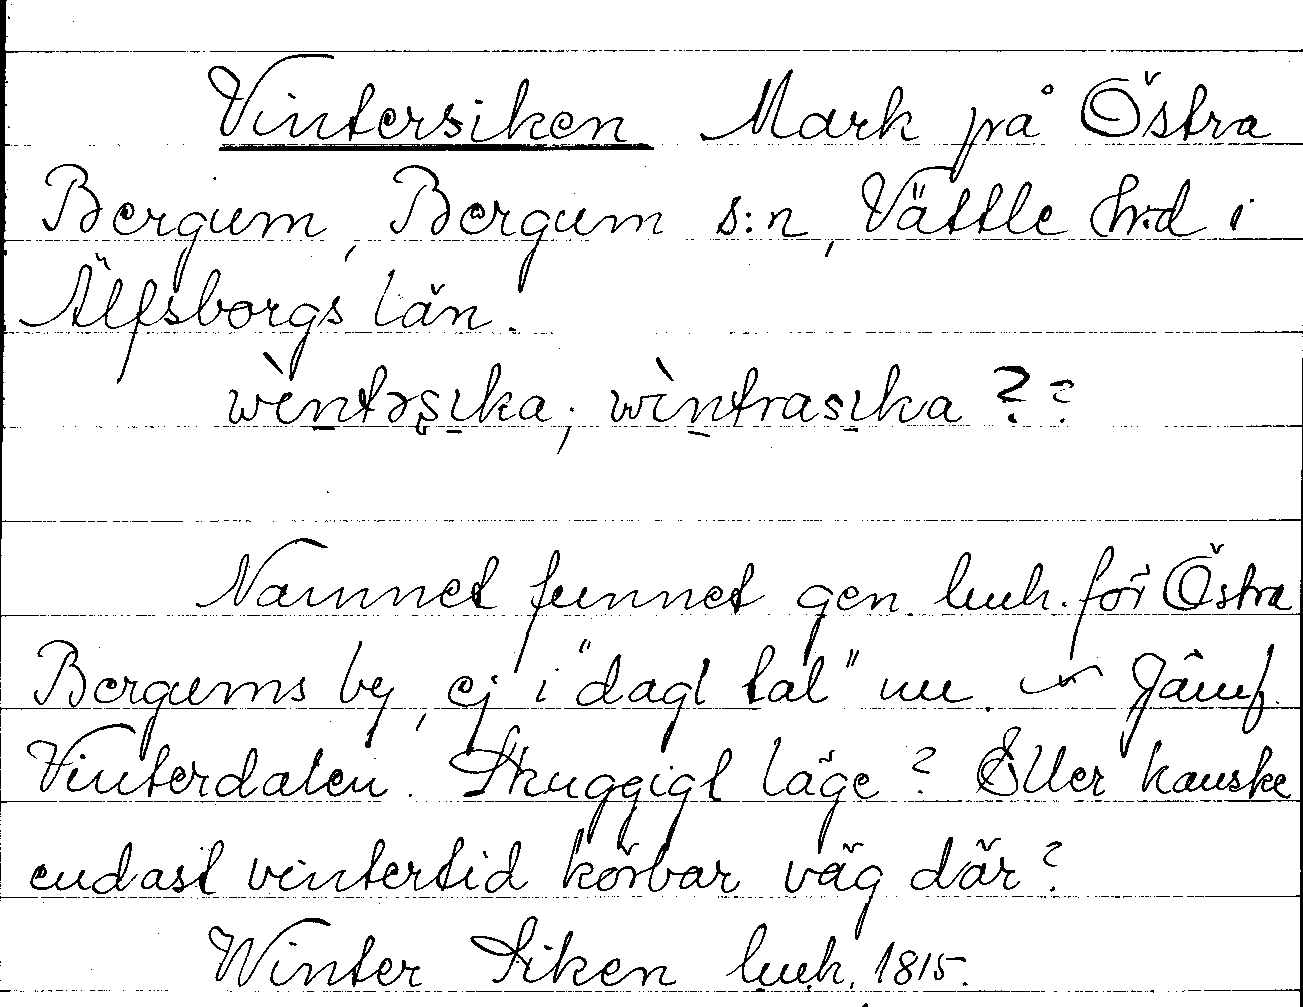 Vintersiken Mark på Östra
Bergum, Bergum s:n, Vättle hrd i
Älfsborgs län.
wìntəṣıka; wìntrasıka ??
Namnet funnet gen. luuh. för Östra
Bergums by, ej i "dagl tal" nu. Jämf.
Vinterdalen. Skuggigt läge? Eller kanske
endast vintertid körbar väg där?
Winter Siken luuh. 1815.